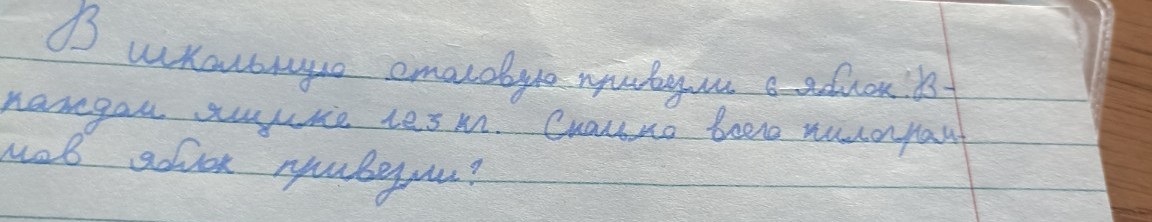 В школьную столовую привезли 6 яблок. В
каждом ящике 123 кг. Сколько всего килограм-
мов яблок привезли?